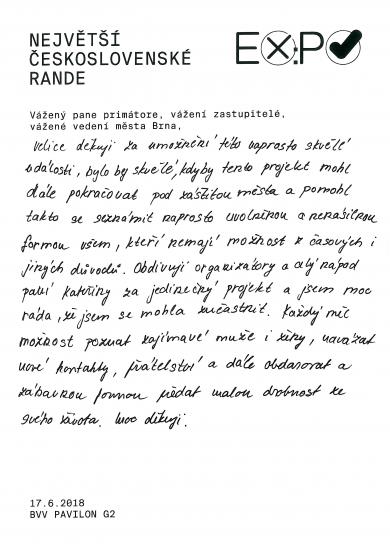 NEJVĚTŠÍ
ČESKOSLOVENSKÉ
RANDE
EX:PO
Vážený pane primátore, vážení zastupitelé,
vážené vedení města Brna,
velice děkuji za umožnění této naprosto skvělé
události, bylo by skvělé, kdyby tento projekt mohl
dále pokračovat pod záštitou města a pomohl
takto se seznámit naprosto uvolněnou a nenásilnou
formou všem, kteří nemají možnost z časových i
jiných důvodů. Obdivuji organizátory a celý nápad
paní Kateřiny za jedinečný projekt a jsem moc
ráda, že jsem se mohla zúčastnit. Každý měl
možnost poznat zajímavé muže i ženy, navázat
nové kontakty, přátelství a dále obdarovat a
zábavnou formou předat malou drobnost ze
svého života. Moc děkuji.
17.6.2018
BVV PAVILON G2